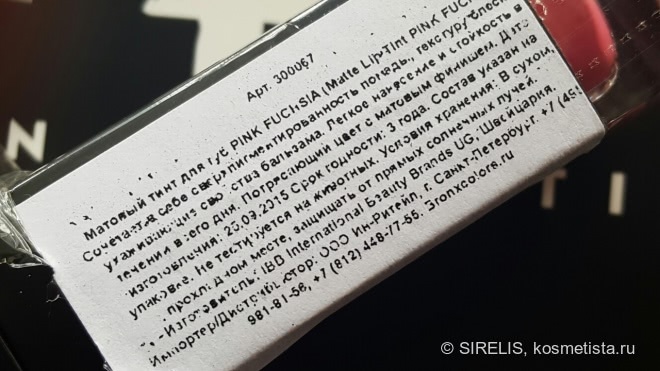 Арт. 300067
Матовый тинт для губ PINK FUCHSIA (Matte Lip Tint PINK FUC
Сочетает в себе сверхпигментированность помады, текстуру блеска
ухаживающие свойства бальзама. Легкое нанесение и стойкость в
течении всего дня. Потрясающий цвет с матовым финишем. Дата
изготовления: 23.03.2015 Срок годности: 3 года. Состав указан на
упаковке. Не тестируется на животных. Условия хранения: В сухом,
прохладном месте, защищать от прямых солнечных лучей.
Изготовитель: IBD International Beauty Brands UG, Швейцария.
Импортер/Дистрибьютор: ООО Ин-Ритейл, г. Санкт-Петербург, +7 (495)
981-81-58, +7 (812) 448-77-55. Bronxcolors.ru
N
TI
© SIRELIS, kosmetista.ru